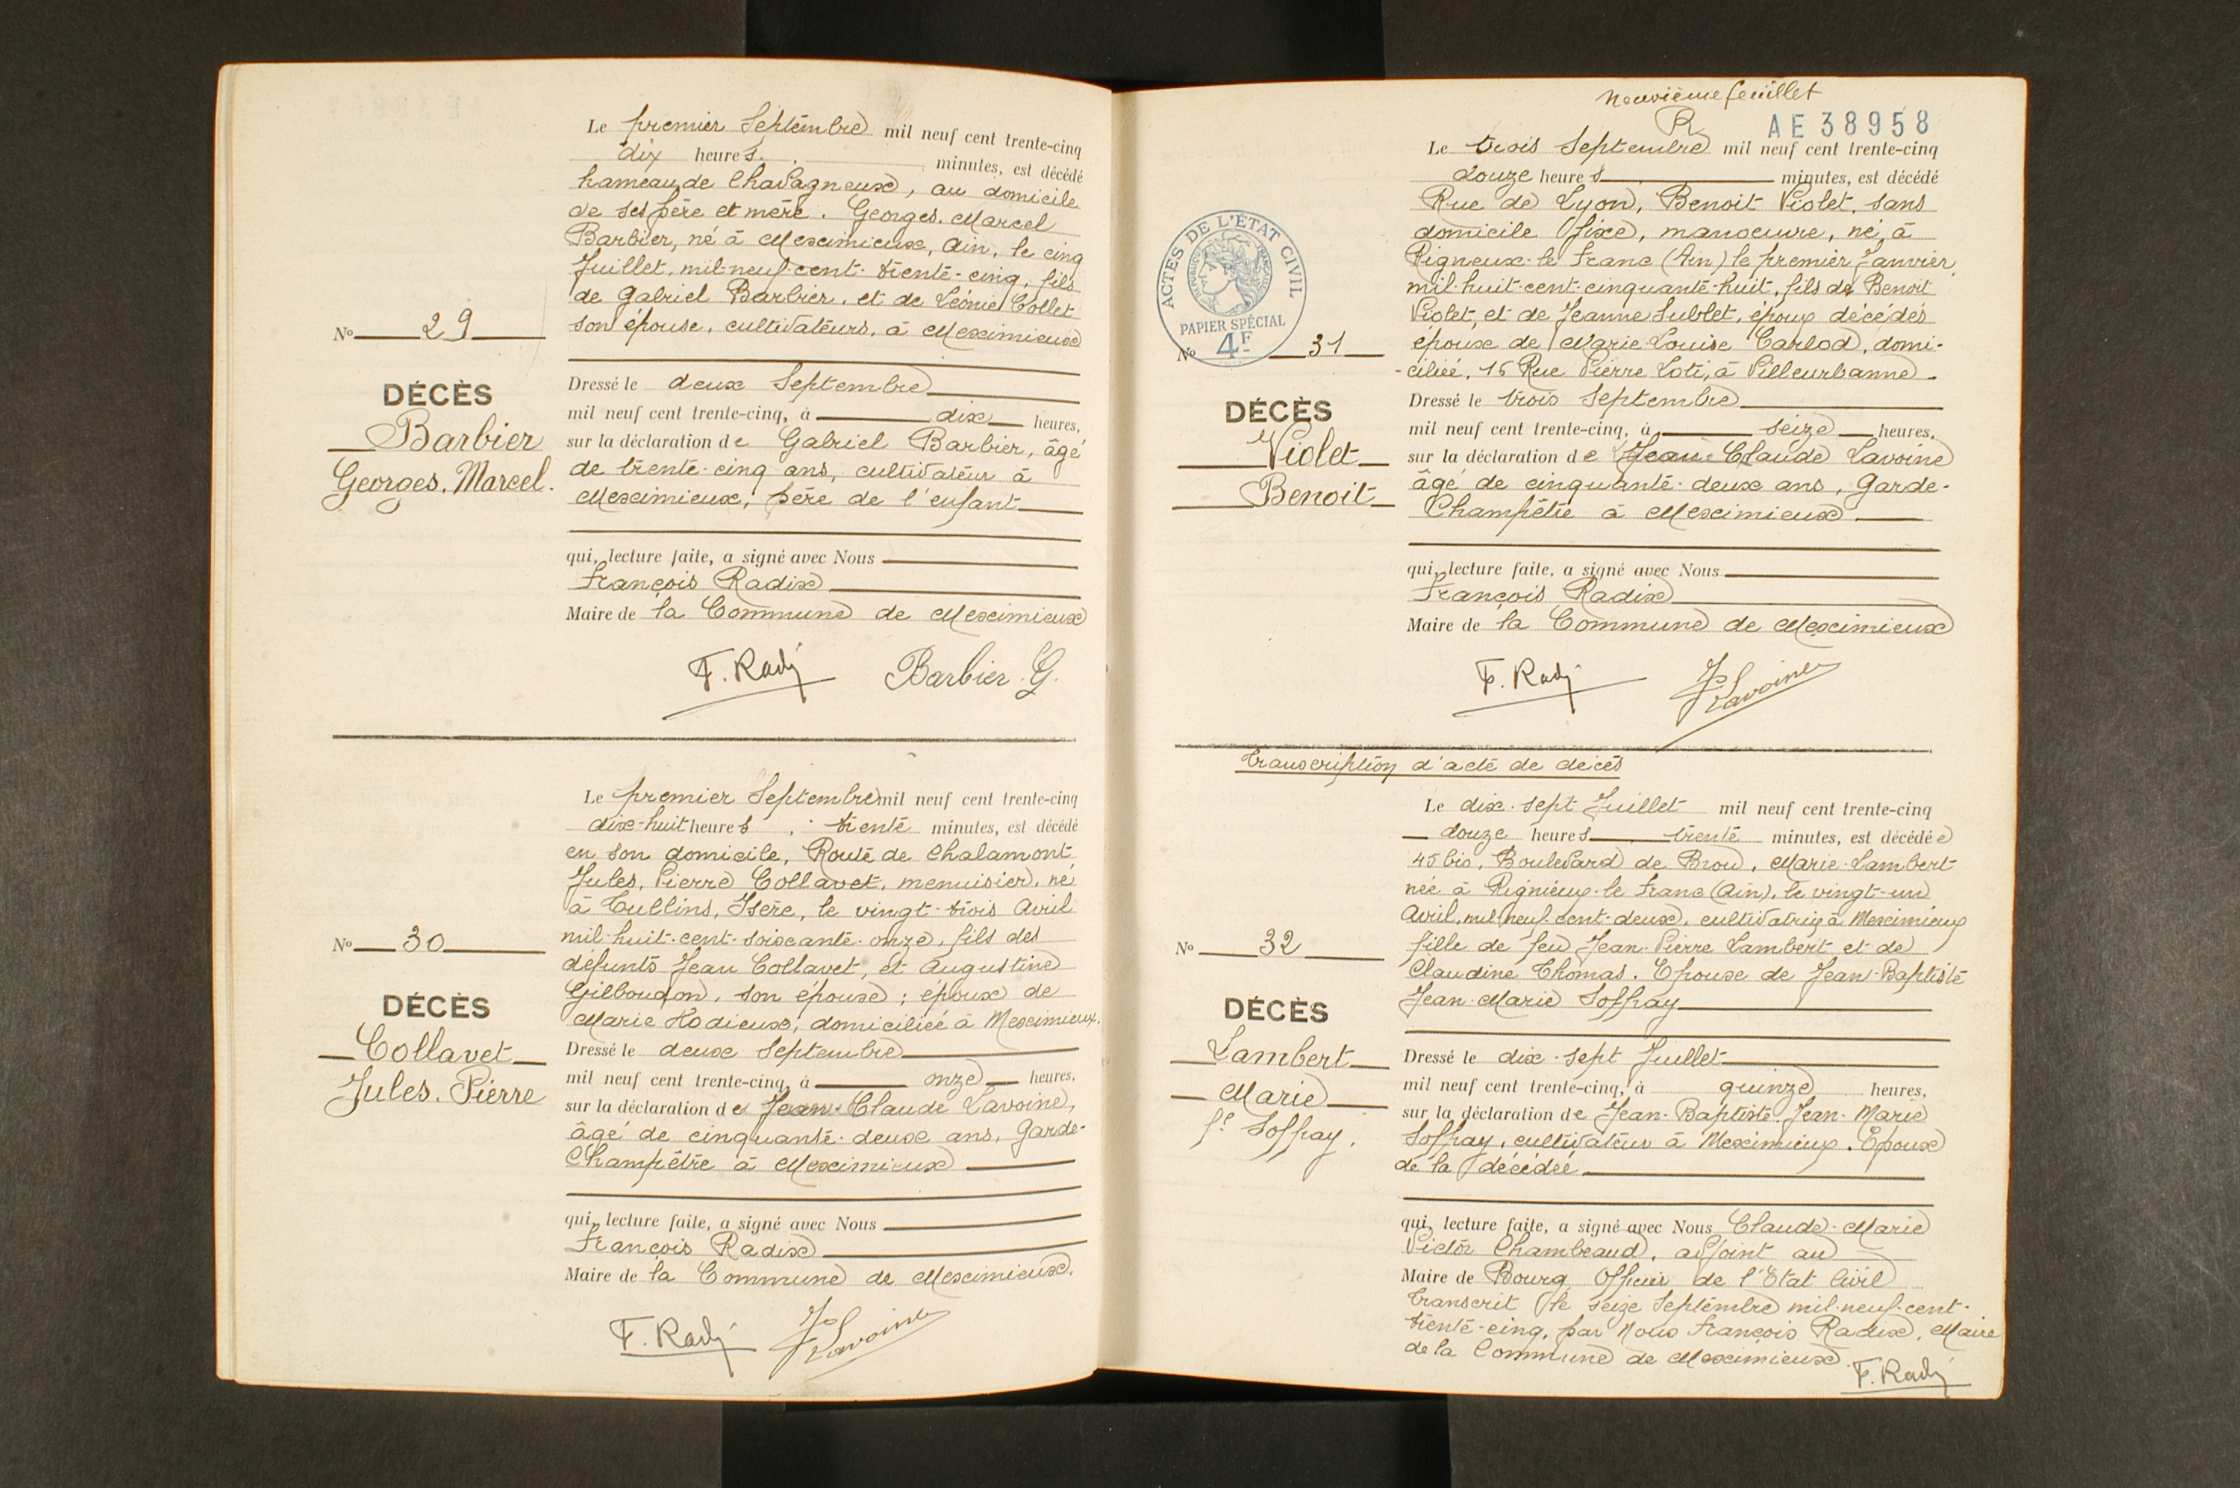 Le premier Septembre mil neuf cent trente-cinq
dix heures. minutes, est décédé
hameau de Chavagneux, au domicile
de ses père et mère. Georges. Marcel
Barbier, né à Meximieux, Ain, le cinq
Juillet, mil-neuf-cent-trente-cinq, fils
de Gabriel Barbier, et de Léonie Collet
son épouse, cultivateurs, à Meximieux
No 29
DÉCÈS
Barbier
Georges. Marcel.
Dressé le deux Septembre
mil neuf cent trente-cinq, à dix heures,
sur la déclaration de Gabriel Barbier, âgé
de trente-cinq ans, cultivateur à
Meximieux, père de l'enfant
qui, lecture faite, a signé avec Nous
François Radix
Maire de la Commune de Meximieux
F. Radix Barbier. G.
Le premier Septembre mil neuf cent trente-cinq
dix-huit heures, trente minutes, est décédé
en son domicile, Route de Chalamont
Jules, Pierre Collavet, menuisier, né
à Tullins, Isère, le vingt-trois Avril
mil-huit-cent-soixante-onze, fils des
défunts Jean Collavet, et Augustine
Gilboudon, son épouse; époux de
Marie Hodieux, domiciliée à Meximieux.
No 30
DÉCÈS
Collavet
Jules. Pierre
Dressé le deux Septembre
mil neuf cent trente-cinq, à onze heures,
sur la déclaration de Jean-Claude Lavoine,
âgé de cinquante-deux ans, Garde-
Champêtre à Meximieux
qui, lecture faite, a signé avec Nous
François Radix
Maire de la Commune de Meximieux.
F. Radix Lavoine
Neuvième feuillet
R
AE 38958
Le trois Septembre mil neuf cent trente-cinq
douze heures minutes, est décédé
Rue de Lyon, Benoit Violet, sans
domicile fixe, manoeuvre, né, à
Rigneux-le Franc (Ain) le premier Janvier
mil-huit-cent-cinquante-huit, fils de Benoit
Violet, et de Jeanne Sublet, époux décédés
époux de Marie Louise Carlod, domi-
-ciliée, 16 Rue Pierre Loti, à Villeurbanne.
ACTES DE L'ÉTAT CIVIL
PAPIER SPÉCIAL
4F
No 31
DÉCÈS
Violet
Benoit
Dressé le trois Septembre
mil neuf cent trente-cinq, à seize heures,
sur la déclaration de Jean-Claude Lavoine
âgé de cinquante-deux ans, Garde-
Champêtre à Meximieux
qui, lecture faite, a signé avec Nous
François Radix
Maire de la Commune de Meximieux
F. Radix Lavoine
Transcription d'acte de décès
Le dix-sept Juillet mil neuf cent trente-cinq
douze heures trente minutes, est décédée
45 bis, Boulevard de Brou, Marie Lambert
née à Rignieux-le Franc (Ain), le vingt-un
Avril, mil-neuf-cent-deux, cultivatrice à Meximieux
fille de feu Jean-Pierre Lambert et de
Claudine Thomas. Epouse de Jean-Baptiste
Jean-Marie Soffray
No 32
DÉCÈS
Lambert
Marie
fe Soffray.
Dressé le dix-sept Juillet
mil neuf cent trente-cinq, à quinze heures,
sur la déclaration de Jean-Baptiste Jean-Marie
Soffray, cultivateur à Meximieux. Epoux
de la décédée
qui, lecture faite, a signé avec Nous Claude-Marie
Victor Chambeaud, adjoint au
Maire de Bourg Officier de l'Etat Civil
Transcrit le seize Septembre mil-neuf-cent-
trente-cinq, par Nous François Radix, Maire
de la Commune de Meximieux.
F. Radix